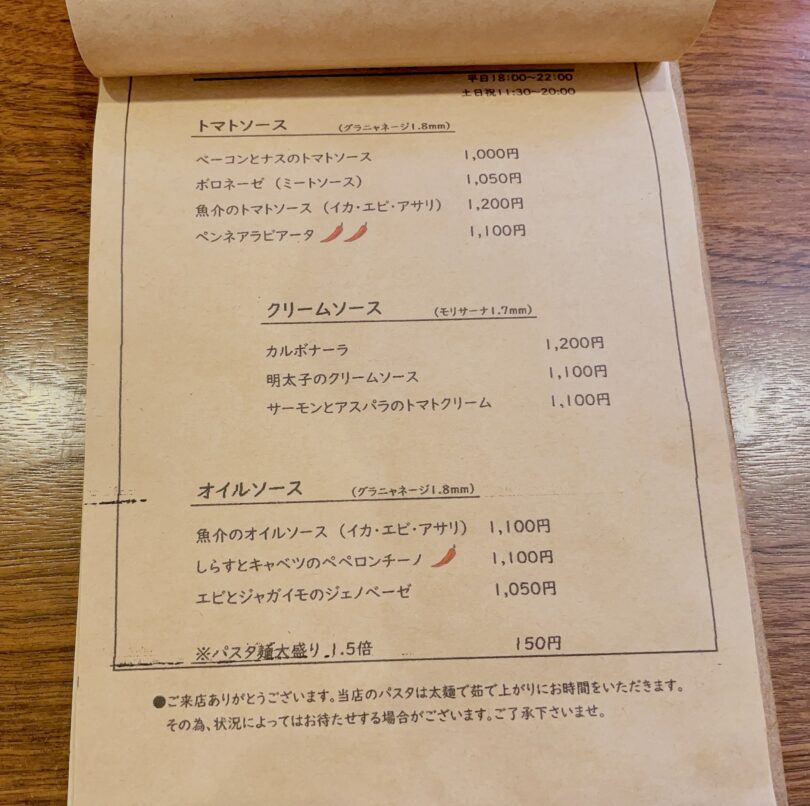 平日18:00~22:00
土日祝11:30~20:00
トマトソース (グラニャネージ1.8mm)
ベーコンとナスのトマトソース 1,000円
ボロネーゼ (ミートソース) 1,050円
魚介のトマトソース (イカ・エビ・アサリ) 1,200円
ペンネアラビアータ 1,100円
クリームソース (モリサーナ1.7mm)
カルボナーラ 1,200円
明太子のクリームソース 1,100円
サーモンとアスパラのトマトクリーム 1,100円
オイルソース (グラニャネージ1.8mm)
魚介のオイルソース (イカ・エビ・アサリ) 1,100円
しらすとキャベツのペペロンチーノ 1,100円
エビとジャガイモのジェノベーゼ 1,050円
※パスタ麺大盛り 1.5倍 150円
●ご来店ありがとうございます。当店のパスタは太麺で茹で上がりにお時間をいただきます。
その為、状況によってはお待たせする場合がございます。ご了承下さいませ。